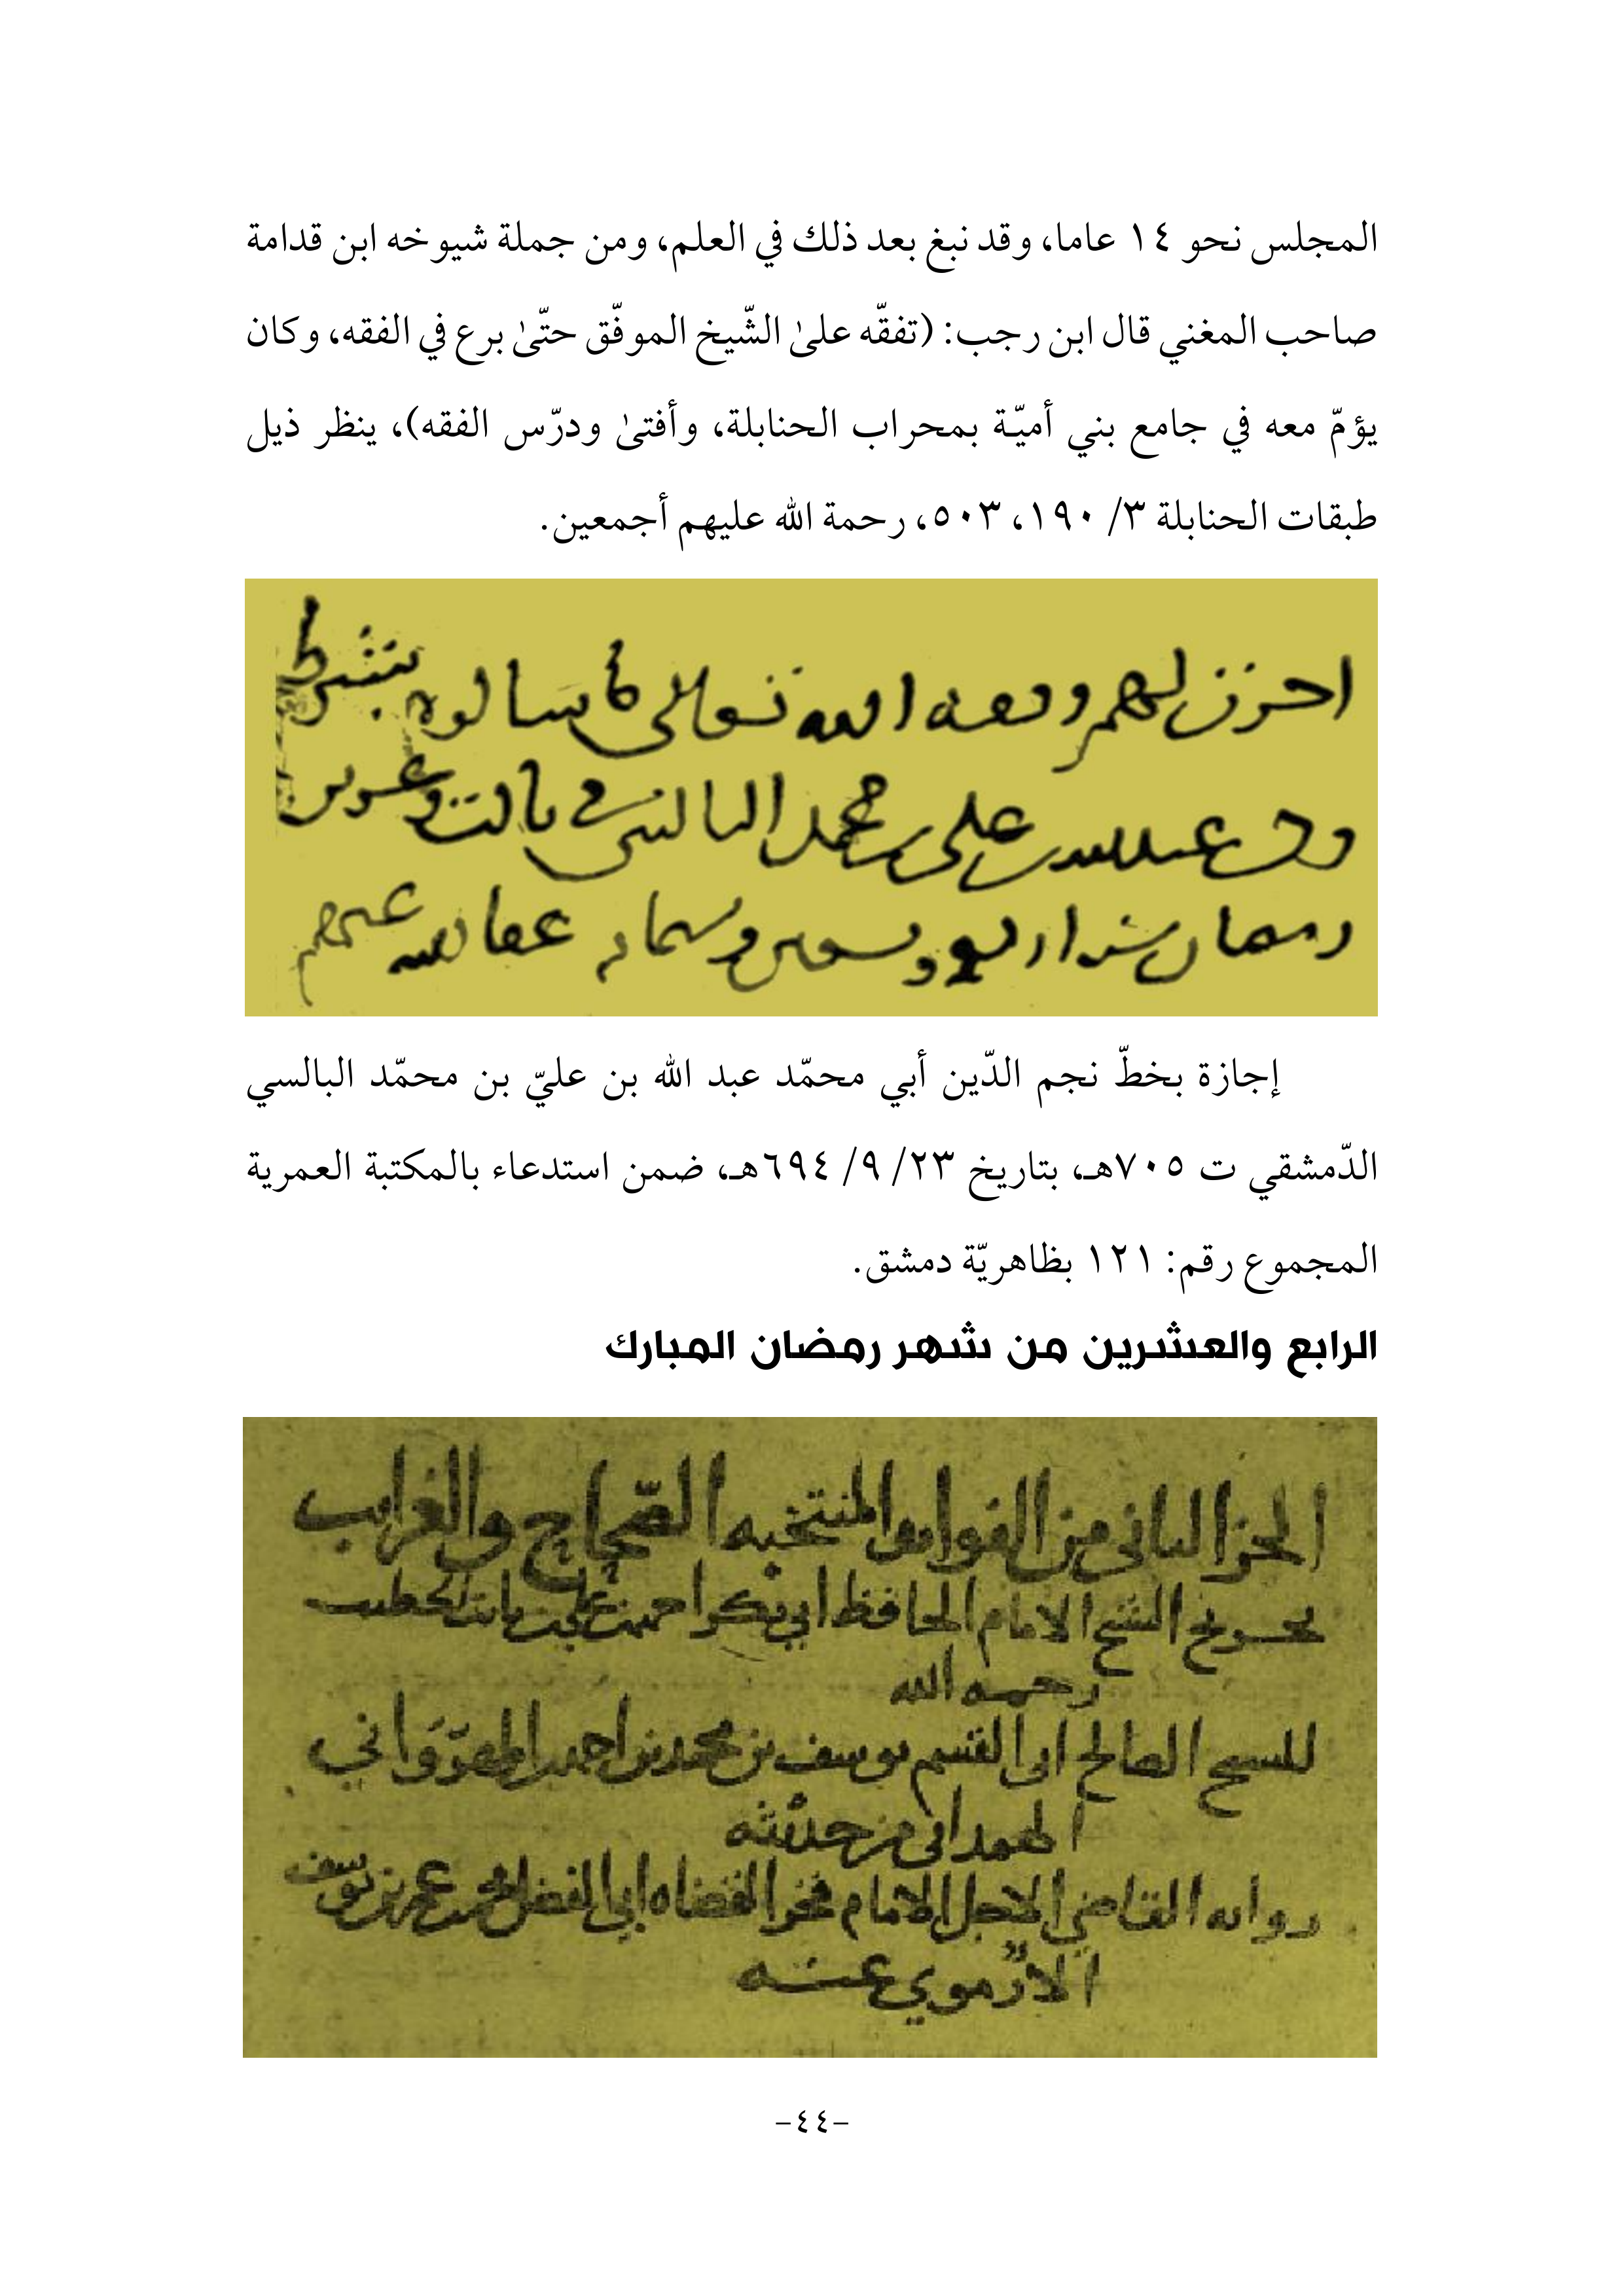 المجلس نحو ١٤ عاما، وقد نبغ بعد ذلك في العلم، ومن جملة شيوخه ابن قدامة
صاحب المغني قال ابن رجب: (تفقّه علىٰ الشّيخ الموفّق حتّىٰ برع في الفقه، وكان
يؤمّ معه في جامع بني أميّة بمحراب الحنابلة، وأفتىٰ ودرّس الفقه)، ينظر ذيل
طبقات الحنابلة ٣/ ١٩٠، ٥٠٣، رحمة الله عليهم أجمعين.
احرت لهم وفقهم الله تعالى ما سالوه بشرطه
وكتب عبد الله بن علي بن محمد البالسي في ثالث وعشرين
رمضان سنة اربع وتسعين وستمائه عفا الله عنهم
إجازة بخطّ نجم الدّين أبي محمّد عبد الله بن عليّ بن محمّد البالسي
الدّمشقي ت ٧٠٥هـ، بتاريخ ٢٣/ ٩/ ٦٩٤هـ، ضمن استدعاء بالمكتبة العمرية
المجموع رقم: ١٢١ بظاهريّة دمشق.
الرابع والعشرين من شهر رمضان المبارك
الجزء الثاني من الفوائد المنتخبه الصّحاح والغرايب
تخريج الشيخ الامام الحافظ ابي بكر احمد بن علي بن ثابت الخطيب
رحمه الله
للشيخ الصالح ابي القسم يوسف بن محمد بن احمد المهرَوَاني
الهمداني من حديثه
روايه القاضي الاجل الامام فخر القضاه ابي الفضل محمد بن عمر بن يوسف
الارموي عنه
-٤٤-